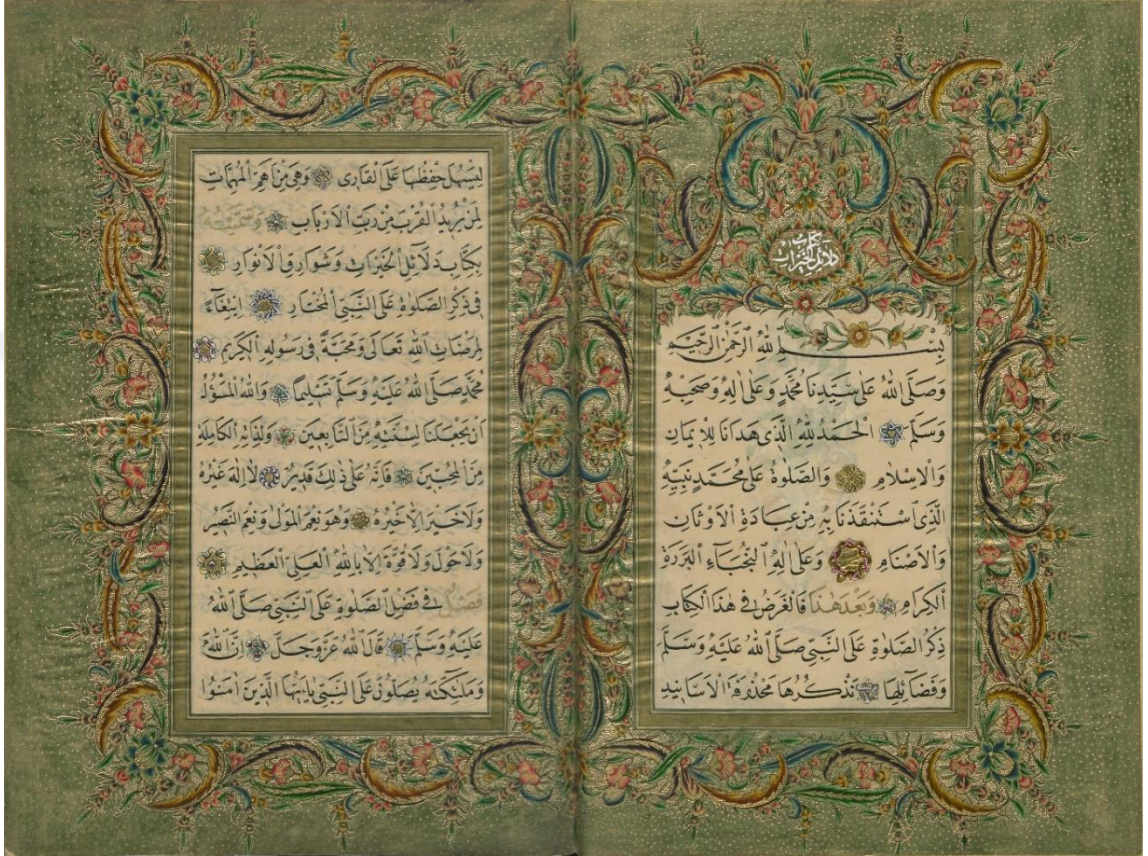 كتاب
دلائل الخيرات
بِسْمِ اللهِ الرَّحْمٰنِ الرَّحِيمِ
وَصَلَّى اللهُ عَلٰى سَيِّدِنَا مُحَمَّدٍ وَعَلٰى اٰلِهِ وَصَحْبِهِ
وَسَلَّمَ الْحَمْدُ لِلّٰهِ الَّذِى هَدَانَا لِلْاِيمَانِ
وَالْاِسْلَامِ وَالصَّلٰوةُ عَلٰى مُحَمَّدٍ نَبِيِّهِ
الَّذِى اسْتَنْقَذَنَا بِهِ مِنْ عِبَادَةِ الْاَوْثَانِ
وَالْاَصْنَامِ وَعَلٰى اٰلِهِ النُّجَبَاءِ الْبَرَرَةِ
الْكِرَامِ وَبَعْدَ هٰذَا فَالْغَرَضُ فِى هٰذَا الْكِتَابِ
ذِكْرُ الصَّلٰوةِ عَلَى النَّبِىِّ صَلَّى اللهُ عَلَيْهِ وَسَلَّمَ
وَفَضَائِلِهَا نَذْكُرُهَا مَحْذُوفَةَ الْاَسَانِيدِ
لِيَسْهُلَ حِفْظُهَا عَلَى الْقَارِى وَهِىَ مِنْ اَهَمِّ الْمُهِمَّاتِ
لِمَنْ يُرِيدُ الْقُرْبَ مِنْ رَبِّ الْاَرْبَابِ وَسَمَّيْتُهُ
بِكِتَابِ دَلَآئِلِ الْخَيْرَاتِ وَشَوَارِقِ الْاَنْوَارِ
فِى ذِكْرِ الصَّلٰوةِ عَلَى النَّبِىِّ الْمُخْتَارِ ابْتِغَآءً
لِمَرْضَاتِ اللهِ تَعَالٰى وَمَحَبَّةً فِى رَسُولِهِ الْكَرِيمِ
مُحَمَّدٍ صَلَّى اللهُ عَلَيْهِ وَسَلَّمَ تَسْلِيمًا وَاللهُ الْمَسْؤُلُ
اَنْ يَجْعَلَنَا لِسُنَّتِهِ مِنَ التَّابِعِينَ وَلِذَاتِهِ الْكَامِلَةِ
مِنَ الْمُحِبِّينَ فَاِنَّهُ عَلٰى ذٰلِكَ قَدِيرٌ لَا اِلٰهَ غَيْرُهُ
وَلَا خَيْرَ اِلَّا خَيْرُهُ وَهُوَ نِعْمَ الْمَوْلٰى وَنِعْمَ النَّصِيرُ
وَلَا حَوْلَ وَلَا قُوَّةَ اِلَّا بِاللهِ الْعَلِىِّ الْعَظِيمِ
فَصْلٌ فِى فَضْلِ الصَّلٰوةِ عَلَى النَّبِىِّ صَلَّى اللهُ
عَلَيْهِ وَسَلَّمَ قَالَ اللهُ عَزَّ وَجَلَّ اِنَّ اللهَ
وَمَلٰئِكَتَهُ يُصَلُّونَ عَلَى النَّبِىِّ يَا اَيُّهَا الَّذِينَ اٰمَنُوا